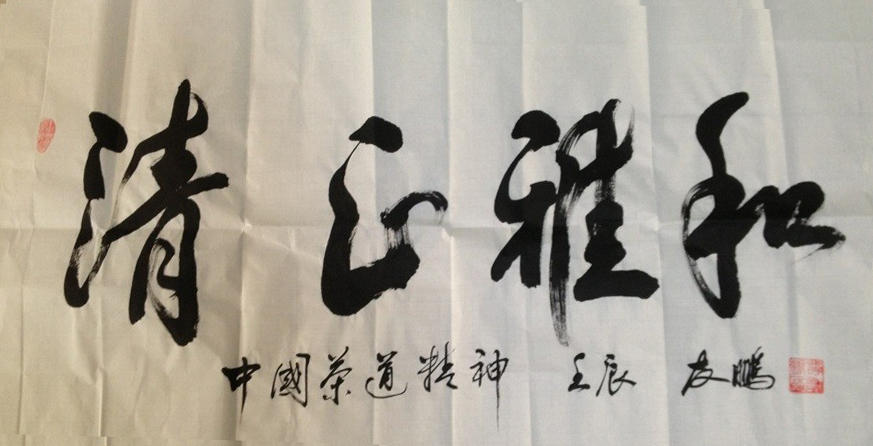 清正雅和
中國茶道精神 壬辰 友鵬